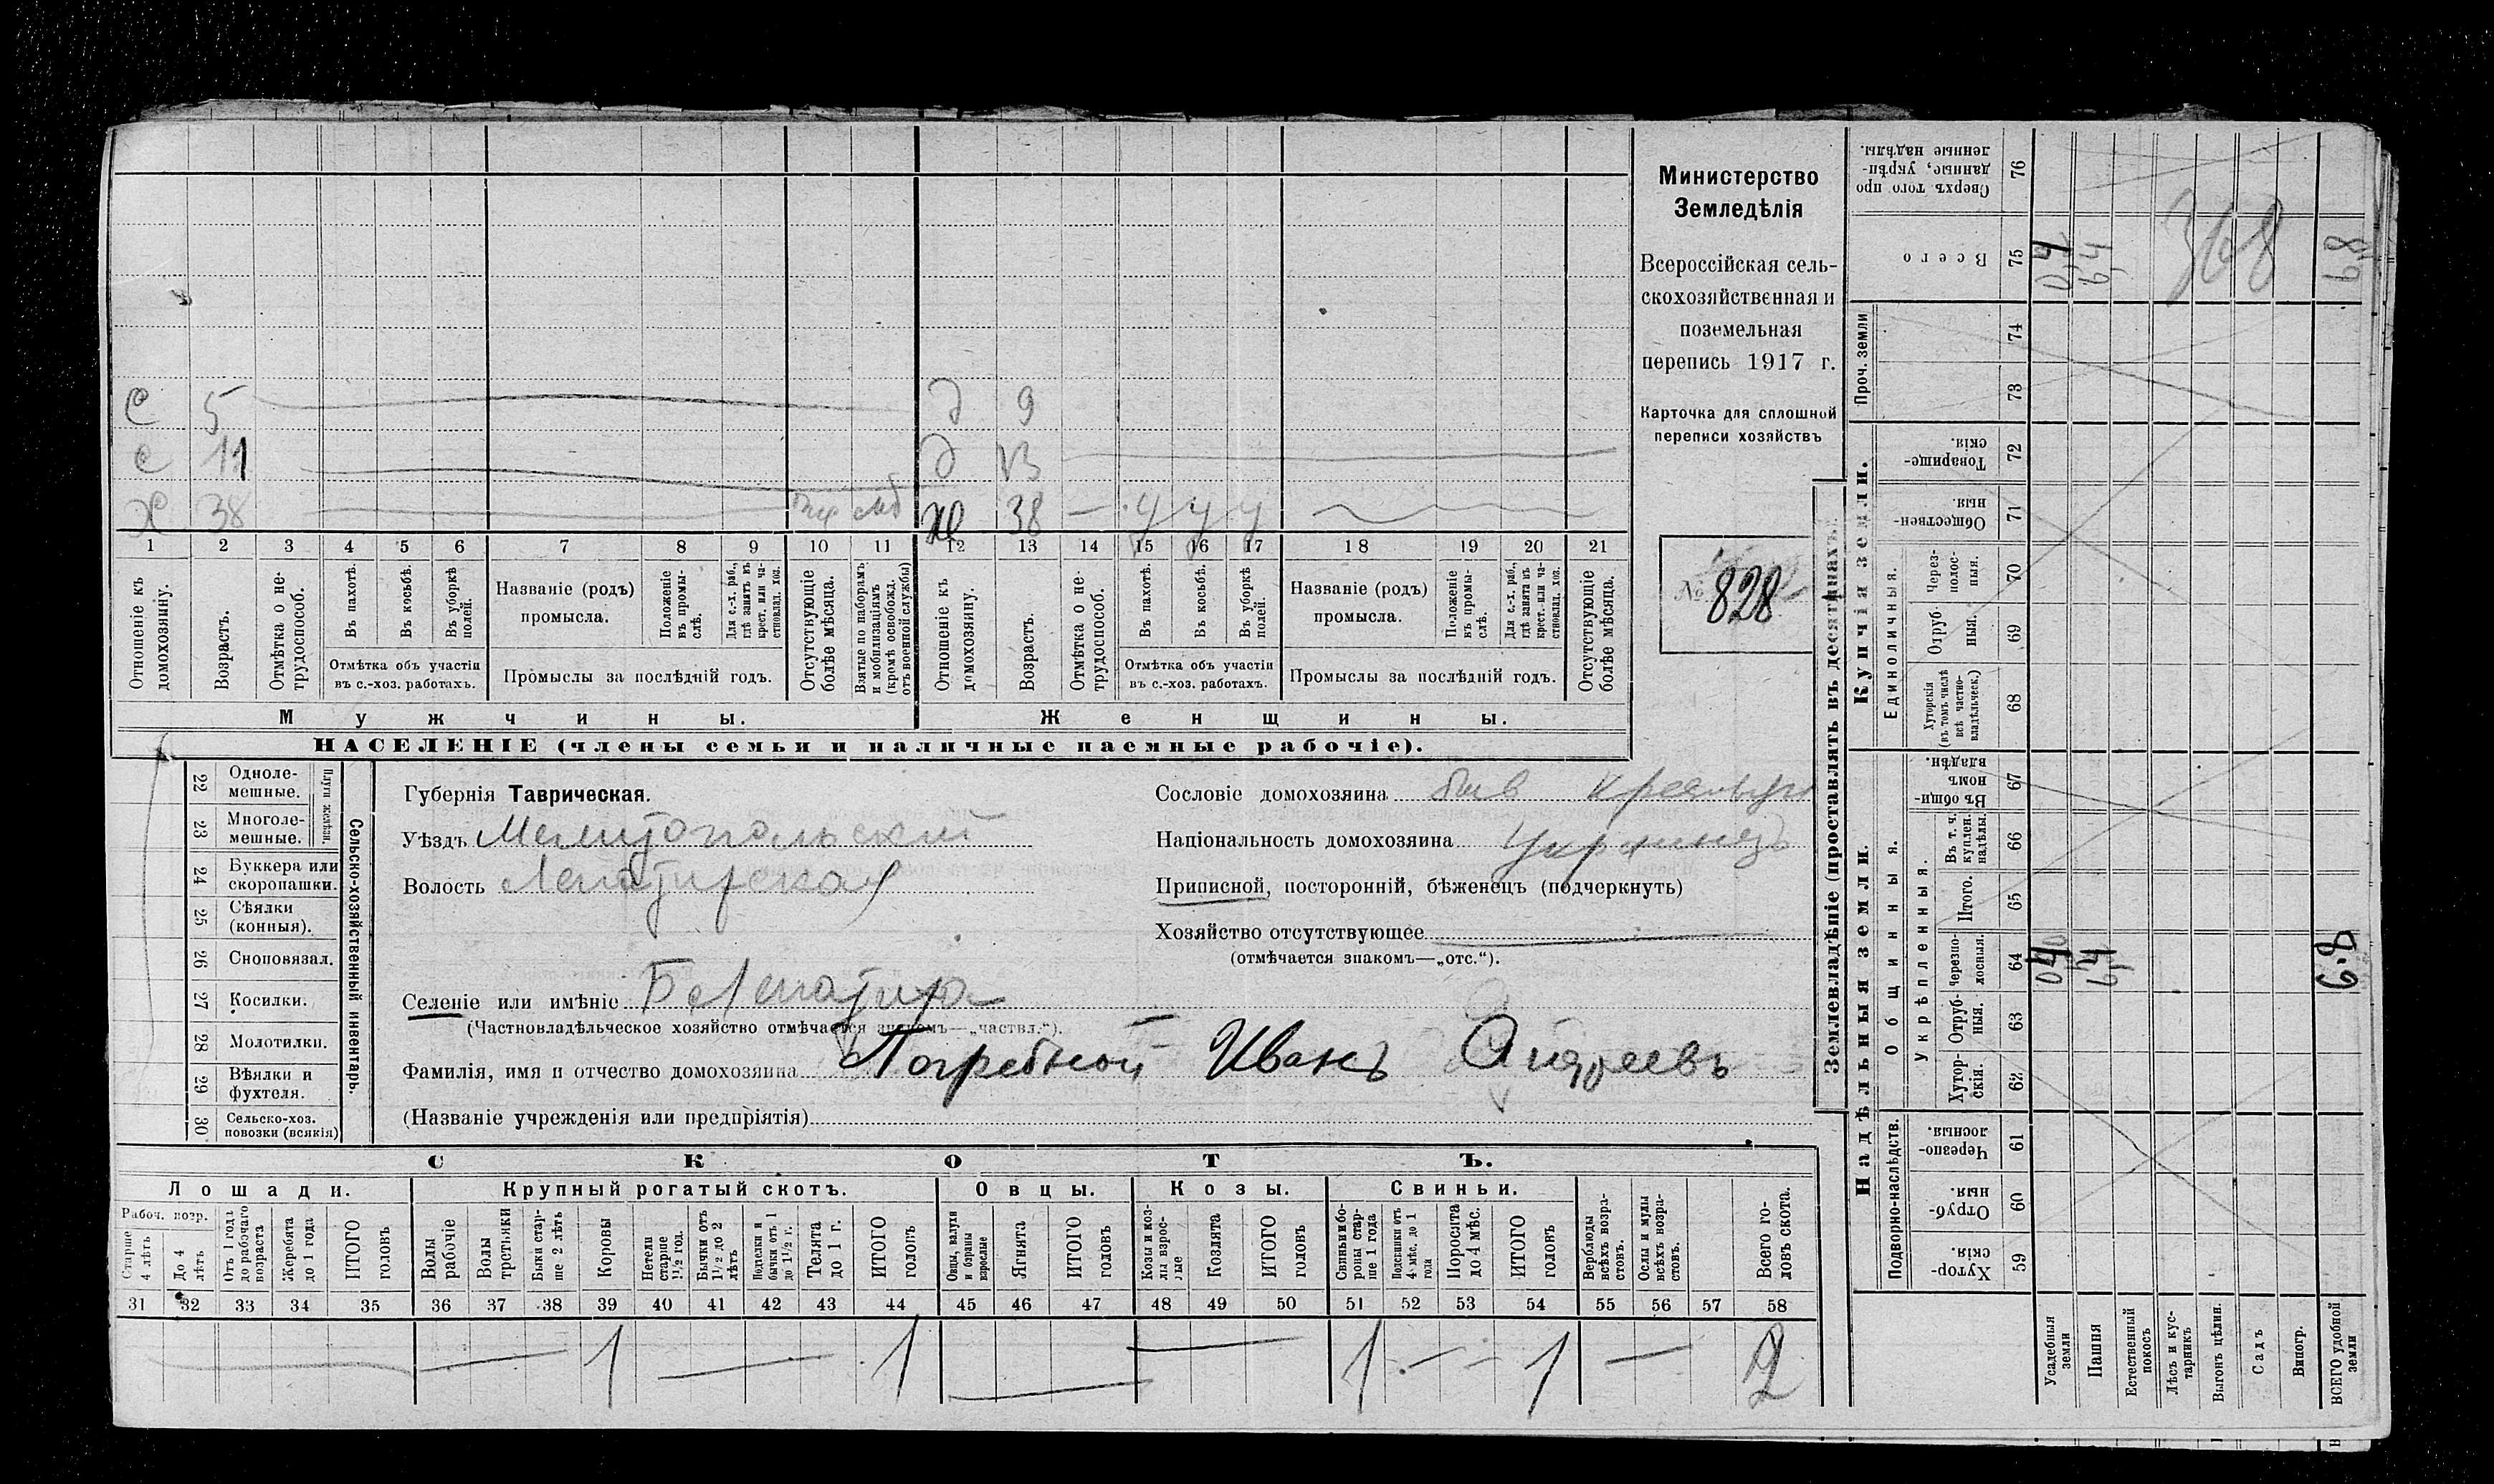 С 5 д 9
с 11 д 13
Х 38 Ж 38 — у у у
1 2 3 4 5 6 7 8 9 10 11 12 13 14 15 16 17 18 19 20 21
Отношеніе къ домохозяину.
Возрастъ.
Отмѣтка о нетрудоспособ.
Въ пахотѣ.
Въ косьбѣ.
Въ уборкѣ полей.
Отмѣтка объ участіи
въ с.-хоз. работахъ.
Названіе (родъ)
промысла.
Положеніе въ промыслѣ.
Для с.-х. раб., гдѣ занятъ въ крест. или частновлад. хоз.
Промыслы за послѣдній годъ.
Отсутствующіе болѣе мѣсяца.
Взятые по наборамъ и мобилизаціямъ (кромѣ освобожд. отъ военной службы)
Отношеніе къ домохозяину.
Возрастъ.
Отмѣтка о нетрудоспособ.
Въ пахотѣ.
Въ косьбѣ.
Въ уборкѣ полей.
Отмѣтка объ участіи
въ с.-хоз. работахъ.
Названіе (родъ)
промысла.
Положеніе въ промыслѣ.
Для с.-х. раб., гдѣ занята въ крест. или частновлад. хоз.
Промыслы за послѣдній годъ.
Отсутствующіе болѣе мѣсяца.
Мужчины. Женщины.
НАСЕЛЕНІЕ (члены семьи и наличные наемные рабочіе).
Министерство
Земледѣлія
Всероссійская сель-
скохозяйственная и
поземельная
перепись 1917 г.
Карточка для сплошной
переписи хозяйствъ
№ 828
Сельско-хозяйственный инвентарь.
22 Одноле-
мешные.
23 Многоле-
мешные.
24 Буккера или
скоропашки.
25 Сѣялки
(конныя).
26 Сноповязал.
27 Косилки.
28 Молотилки.
29 Вѣялки и
фухтеля.
30 Сельско-хоз.
повозки (всякія)
Губернія Таврическая.
Уѣздъ Мелитопольский
Волость Лепатирская
Селеніе или имѣніе Б Лепатира
(Частновладѣльческое хозяйство отмѣчается знакомъ—„частвл.“).
Фамилія, имя и отчество домохозяина Погребной Иванъ Андреевъ
(Названіе учрежденія или предпріятія)
Сословіе домохозяина быв
Національность домохозяина Украинецъ
Приписной, посторонній, бѣженецъ (подчеркнуть)
Хозяйство отсутствующее
(отмѣчается знакомъ—„отс.“).
СКОТЪ.
Лошади. Крупный рогатый скотъ. Овцы. Козы. Свиньи.
Рабоч. возр.
Старше 4 лѣтъ
До 4 лѣтъ
Отъ 1 года до рабочаго возраста
Жеребята до 1 года
ИТОГО головъ
Волы рабочіе
Волы третьяки
Быки старше 2 лѣтъ
Коровы
Нетели старше 1½ год.
Бычки отъ 1½ до 2 лѣтъ
Подтелки и бычки отъ 1 до 1½ г.
Телята до 1 г.
ИТОГО головъ
Овцы, валухи и бараны взрослые
Ягнята
ИТОГО головъ
Козы и козлы взрослые
Козлята
ИТОГО головъ
Свиньи и бороны старше 1 года
Подсвинки отъ 4 мѣс. до 1 года
Поросята до 4 мѣс.
ИТОГО головъ
Верблюды всѣхъ возрастовъ.
Ослы и мулы всѣхъ возрастовъ.
Всего головъ скота.
31 32 33 34 35 36 37 38 39 40 41 42 43 44 45 46 47 48 49 50 51 52 53 54 55 56 57 58
1 1 1 1 2
Землевладѣніе (проставлять въ десятинахъ).
Надѣльныя земли. Купчія земли. Проч. земли
Подворно-наслѣдств.
Общинныя.
Укрѣпленныя.
Единоличныя.
59 Хуторскія.
60 Отрубныя.
61 Черезполосныя.
62 Хуторскія.
63 Отрубныя.
64 Черезполосныя.
65 Итого.
66 Въ т. ч. куплен. надѣлы.
67 Въ общинномъ владѣн.
68 Хуторскія (въ томъ числѣ всѣ частновладѣльческ.)
69 Отрубныя.
70 Черезполосныя.
71 Общественныя.
72 Товарищескія.
73
74
75 Всего
76 Сверхъ того проданные, укрѣпленные надѣлы.
Усадебныя земли
Пашня
Естественный покосъ
Лѣсъ и кустарникъ
Выгонъ цѣлин.
Садъ
Виногр.
ВСЕГО удобной земли
04 64 6.8
04 64 368 68